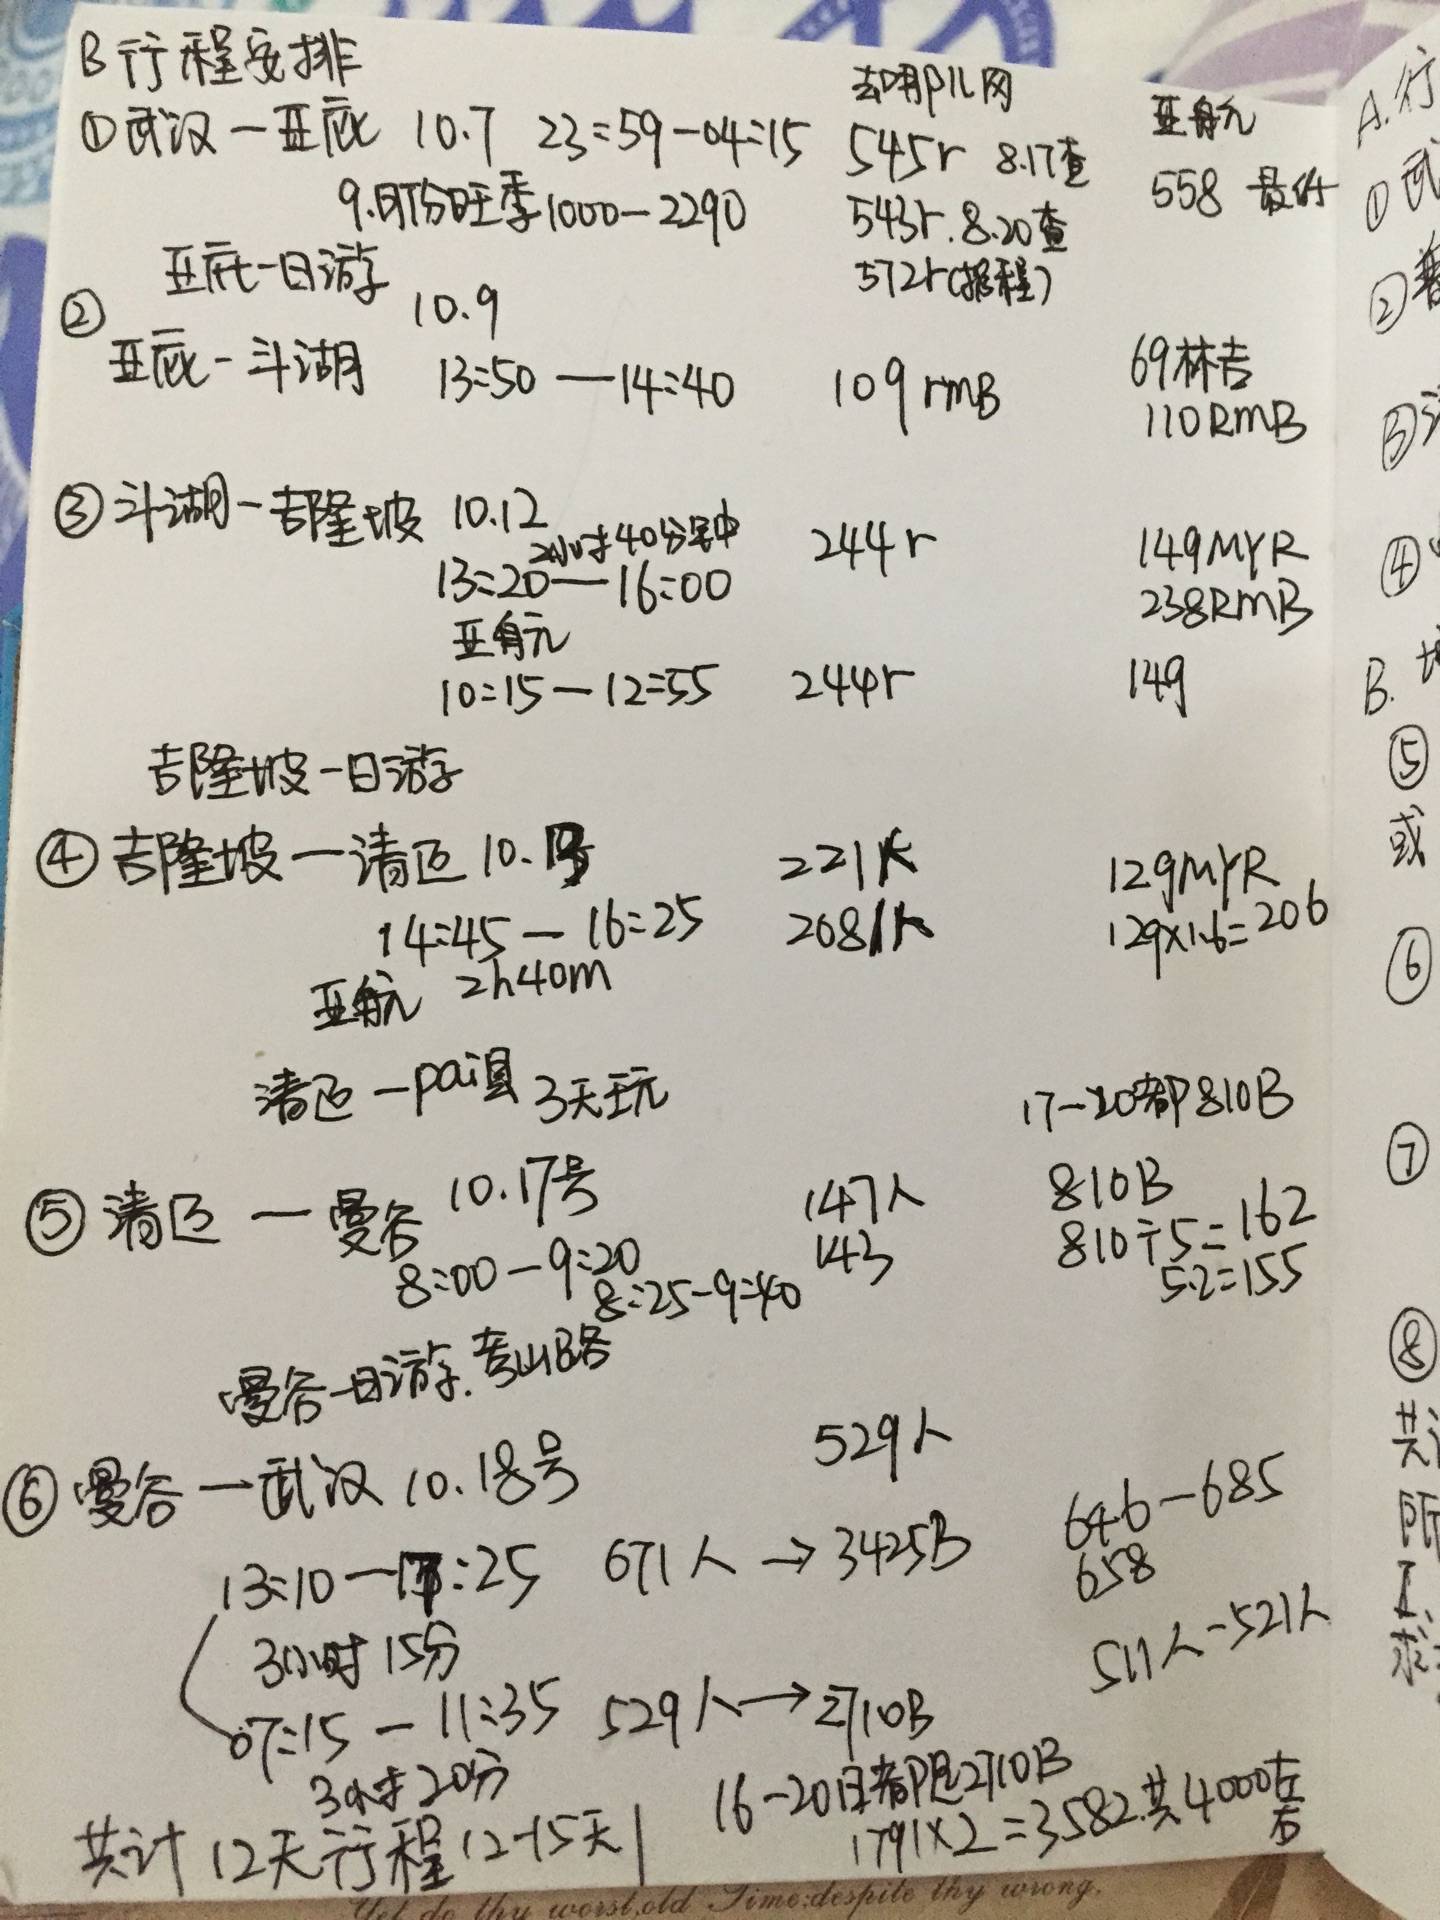 B 行程安排
去哪儿网 亚航
①武汉一亚庇 10.7 23:59-04:15 545r 8.17查 558 最
9.月份旺季1000-2290 543r. 8.20查
亚庇一日游 572r(报程)
② 10.9
亚庇-斗湖 13:50 — 14:40 109 rmB 69林吉
110RmB
③斗湖-吉隆坡 10.12 244r 149MYR
2小时40分钟
13:20 — 16:00 238RmB
亚航
10:15 — 12:55 244r 149
吉隆坡一日游
④吉隆坡一清迈 10. 221人 129MYR
14:45 — 16:25 268人 129x1.6=206
亚航 2h40m
清迈 — pai县 3天玩 17-20都810B
⑤清迈 — 曼谷 10.17号 147人 810B
8:00 - 9:20 143 810÷5=162
8:25-9:40 5.2=155
曼谷一日游. 考山路
529人
⑥曼谷一武汉 10.18号 646-685
13:10 — 17:25 671人 → 3425B 658
3小时15分 511人-521人
07:15 — 11:35 529人 → 2710B
3小时20分 16-20日都是2710B
共计12天行程12-15天 1791x2=3582.共4000左右
A.行
①武
②
③
④
B.
⑤
或
⑥
⑦
⑧
共
所
求
Yet do thy worst, old Time: despite thy wrong,